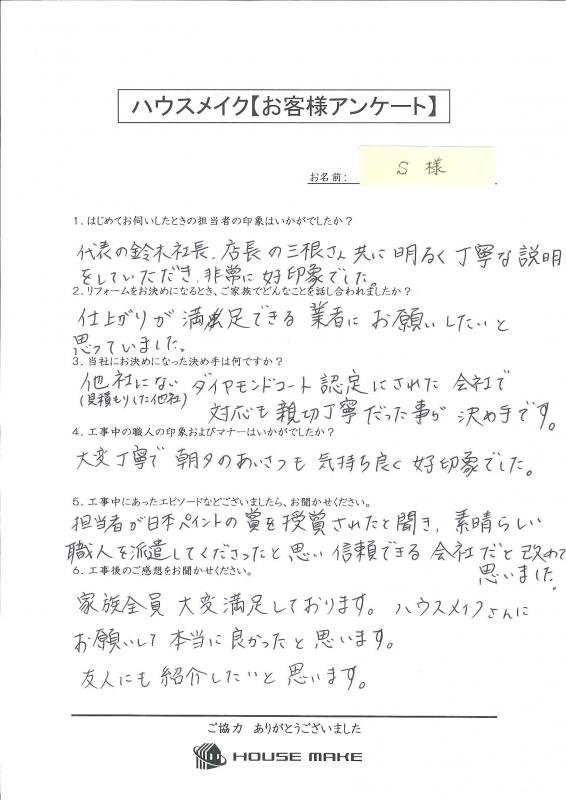 ハウスメイク【お客様アンケート】
お名前: S 様
1. はじめてお伺いしたときの担当者の印象はいかがでしたか？
代表の鈴木社長、店長の三根さん共に明るく丁寧な説明
をしていただき、非常に好印象でした。
2. リフォームをお決めになるとき、ご家族でどんなことを話し合われましたか？
仕上がりが満足できる業者にお願いしたいと
思っていました。
3. 当社にお決めになった決め手は何ですか？
他社にない ダイヤモンドコート認定にされた会社で
(見積もりした他社) 対応も親切丁寧だった事が決め手です。
4. 工事中の職人の印象およびマナーはいかがでしたか？
大変丁寧で朝夕のあいさつも気持ち良く好印象でした。
5. 工事中にあったエピソードなどございましたら、お聞かせください。
担当者が日本ペイントの賞を授賞されたと聞き、素晴らしい
職人を派遣してくださったと思い信頼できる会社だと改めて
思いました。
6. 工事後のご感想をお聞かせください。
家族全員大変満足しております。ハウスメイクさんに
お願いして本当に良かったと思います。
友人にも紹介したいと思います。
ご協力 ありがとうございました
HOUSE MAKE